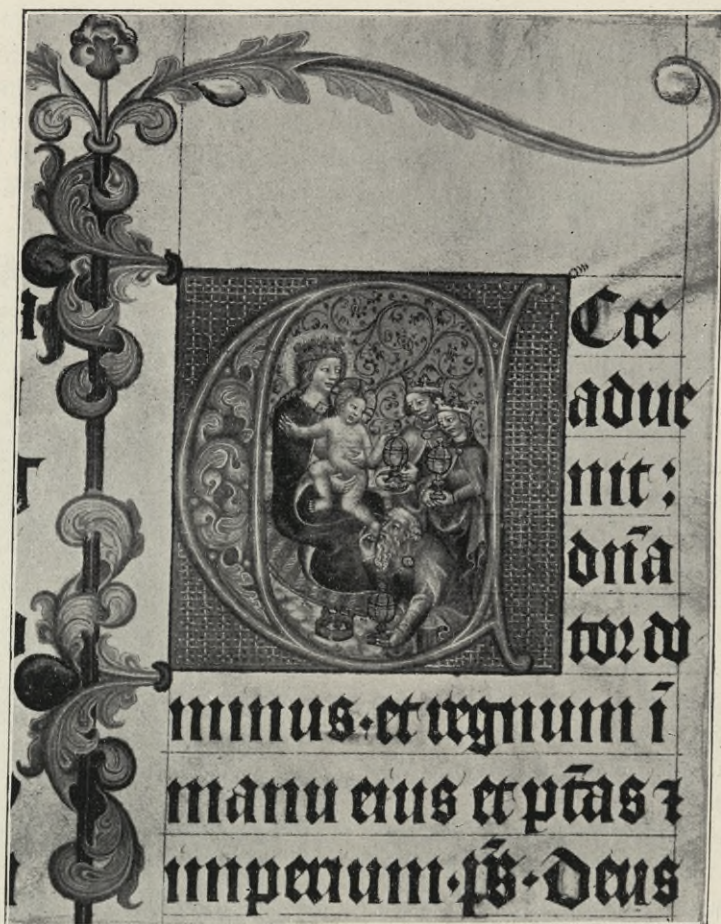 ECce
adue
nit:
dn̄a
tor do
minus·et regnum ī
manu eius et ptās ⁊
imperium·p̄s·Deus